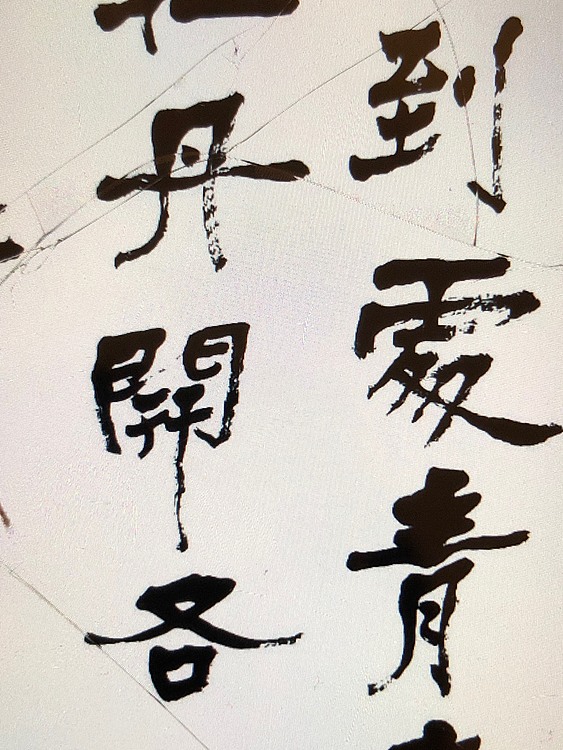 到處青
丹開各